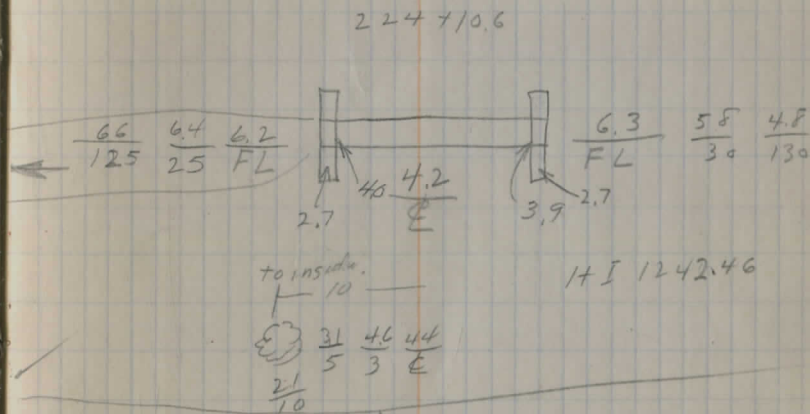 224+10.6
66/125 6.4/25 6.2/FL 6.3/FL 58/30 4.8/130
2.7 40 4.2/℄ 3.9 2.7
to inside.
10
HI 1242.46
31/5 4.6/3 44/℄
21/10